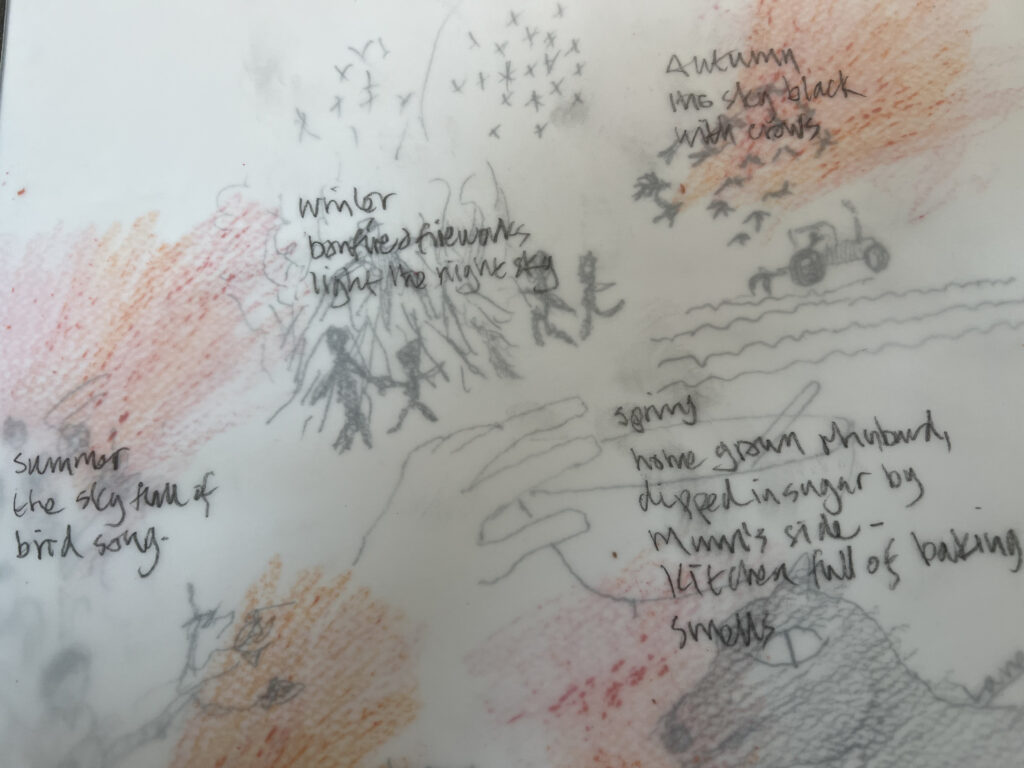 Autumn
the sky black
with crows
winter
bonfire & fireworks
light the night sky
spring
home grown rhubarb,
dipped in sugar by
Mum's side -
Kitchen full of baking
smells
summer
the sky full of
bird song.